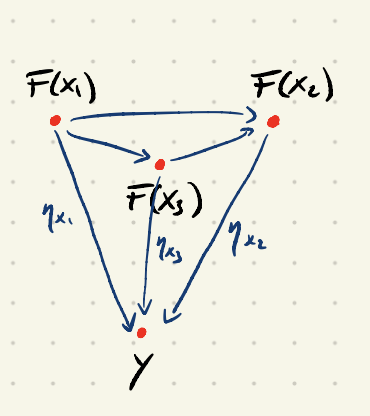 F(x₁)
F(x₂)
F(x₃)
ηx₁
ηx₃
ηx₂
Y